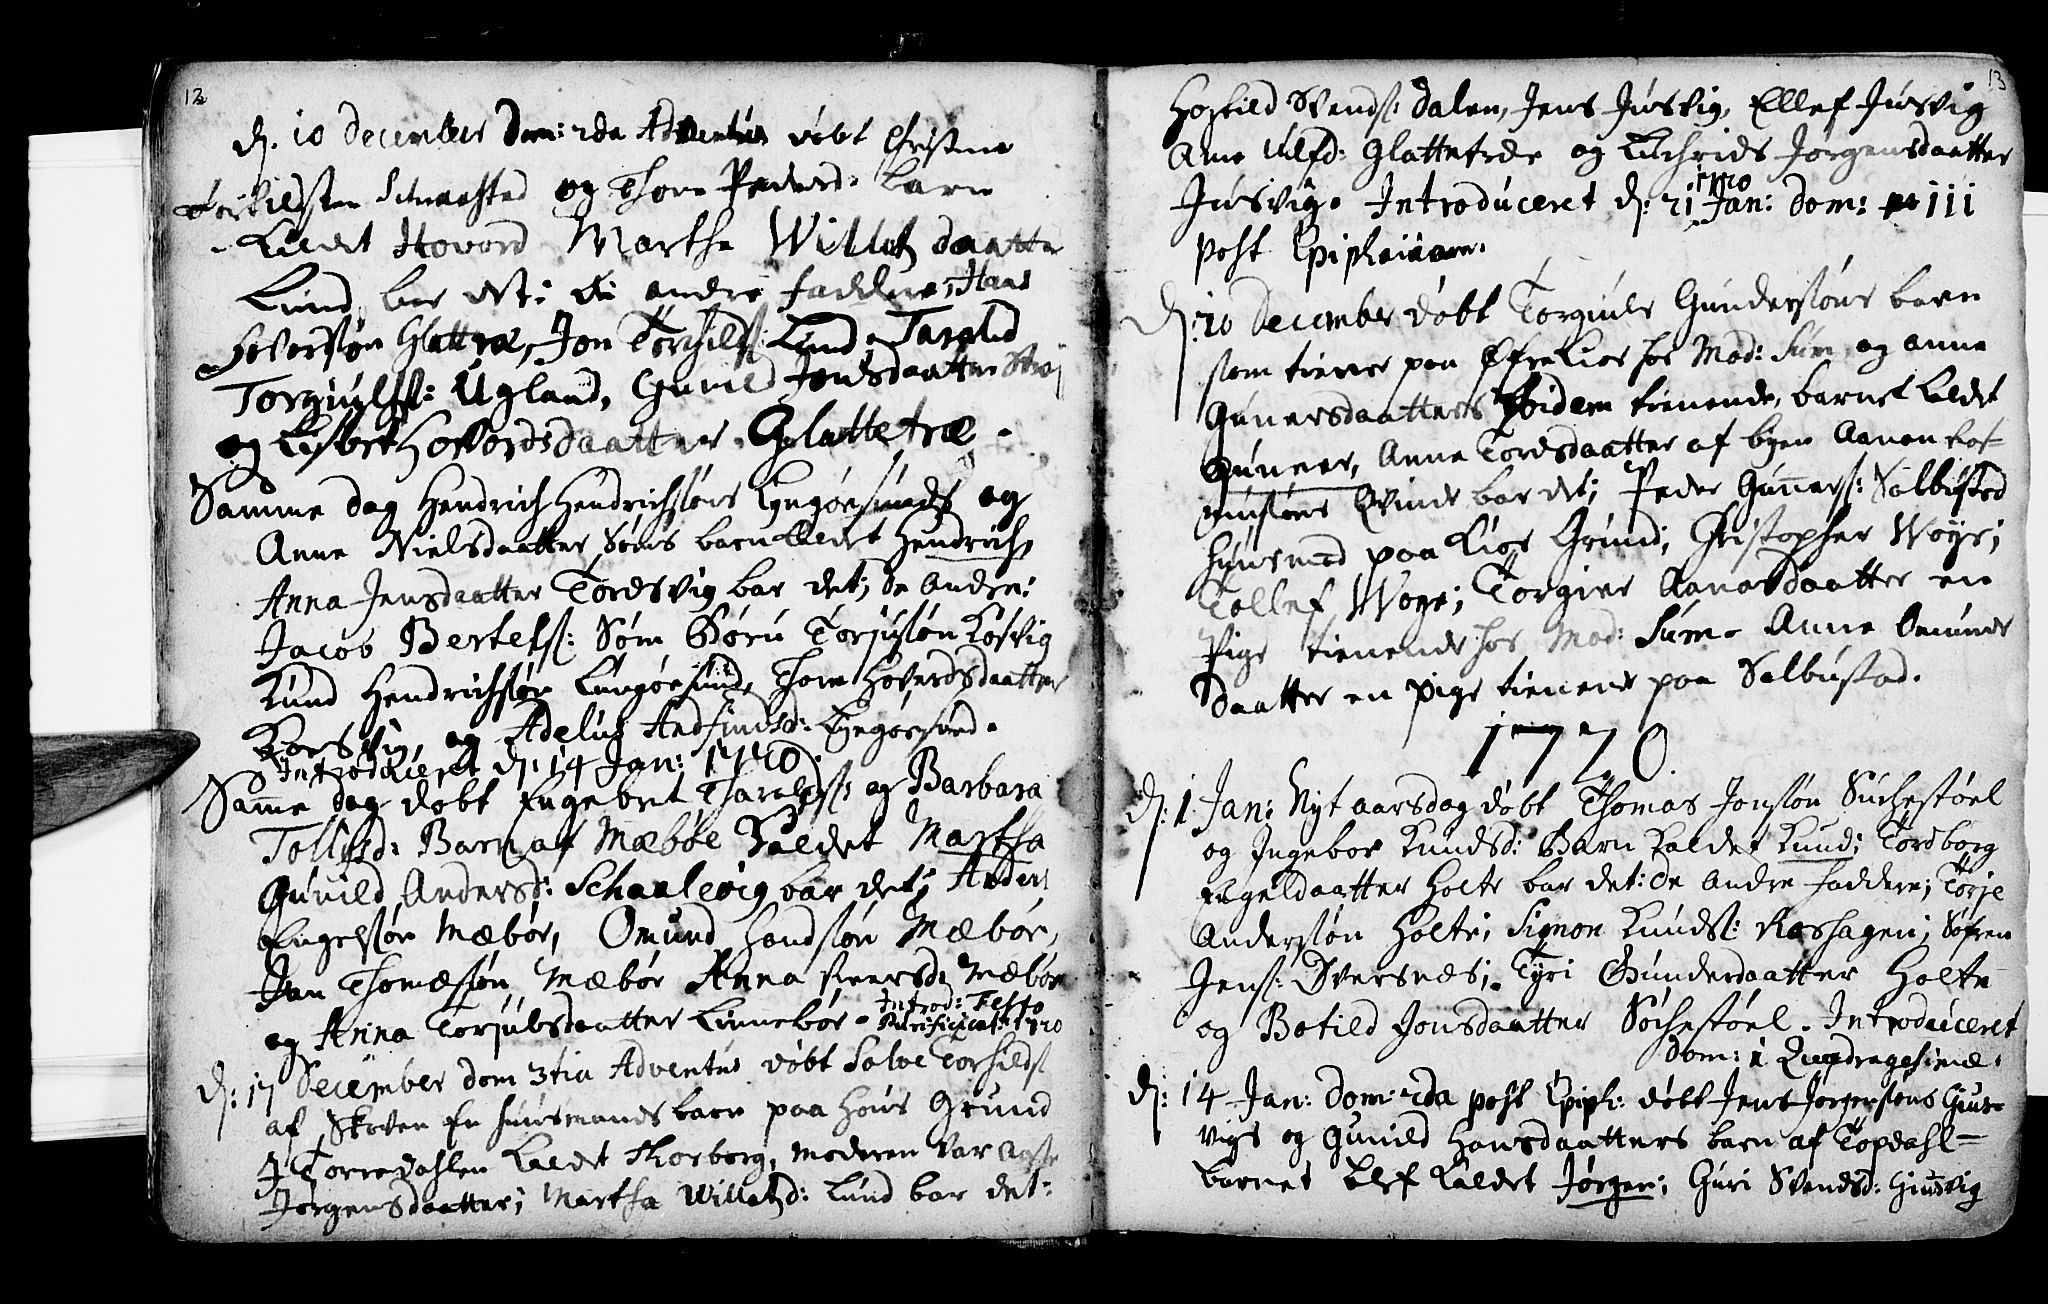 12
d. 10 December Dom: 2da Adventus døbt
og Thore Pedersd: barn
Kaldet Hovord Martha Willatz daatter
Lund bar det; De andre Faddere; Hans
Hoversøn Glattræ, Jon Torchilds: Lund, Tarald
Torgiulss: Ugland, Gunild Jensdaatter
og Lisbet Hovordsdaatter Glattetræ.
Samme dag Hendrich Hendrichsøns Lyngørsunds og
Anne Nielsdaatter Søms barn kaldet Hendrich,
Anna Jensdaatter Tordsvig bar det; de andre:
Jacob Bertelss: Søm Torjussøn Kosvig
Knud Hendrichsøn Lyngørsund, Thore Hoverdsdaatter
Korsvig, og Adelus Andfindsd: Lyngørsund.
Introduceret d: 14 Jan: 1720.
Same dag døbt Engebret Tharalds: og Barbara
Tollefsd: Barn af Mæbøe Kaldet Martha
Gunild Andersd: Schaalevig bar det; Anders
Engelsøn Mæbør, Omund Hansøn Mæbør,
Jan Thomæsøn Mæbør Anna Reersd: Mæbør
og Anna Torjulsdaatter Linnebør. Introd: Festo
Purificat: 1720
d: 17 December dom 3tia Adventus døbt Salve Torkilds:
af Skoven En huusmands barn paa Høus Grund
i Torredahlen Kaldet Thorborg, moderen var
Jørgensdaatter; Martha Willatzd: Lund bar det:
13
Hoskild Svends: Dalen, Jens Jusvig, Ellef Jusvig
Ane Glattetræe og Jørgensdaatter
Jusvig. Introduceret d: 21 Jan: 1720 dom: III
post Epiphaniam.
d: 10 December døbt Torgiuls Gundersøns barn
som tiener paa Øfre Lior hos Mad: Sum, og Anne
Gunersdaatters Ibidem tienende, barnet kaldet
Gunner, Anne Tordsdaatter af byen Aanon
Qvinde bar det; Peder Guners: Salbustad
Huusmand paa Liør Grund; Christopher Wøye;
Tollef Woye; Torgier Aanonsdaatter en
Pige tienende hos Mad: Sum. Anne Omunds
daatter en pige tienende paa Salbustad.
1720.
d: 1 Jan: Nyt aarsdag døbt Thomas Jonsøn Suchestøel
og Ingebor Knudsd: Barn kaldet Knud; Tordborg
Engeldaatter Holte bar det: De andre Faddere; Torje
Andersøn Holte; Simon Knuds: Roshagen; Søfren
Jens: Dversnes; Tyri Gunderdaatter Holte
og Botild Jonsdaatter Søchestøel. Introduceret
Dom: 1 Quadragesimæ.
d: 14 Jan: Dom: 2da post Epiph: døbt Jens Jørgensøns Gius-
vigs og Gunild Hansdaatters barn af Topdahl-
Barnet blef kaldet Jørgen; Guri Svendsd: Giusvig